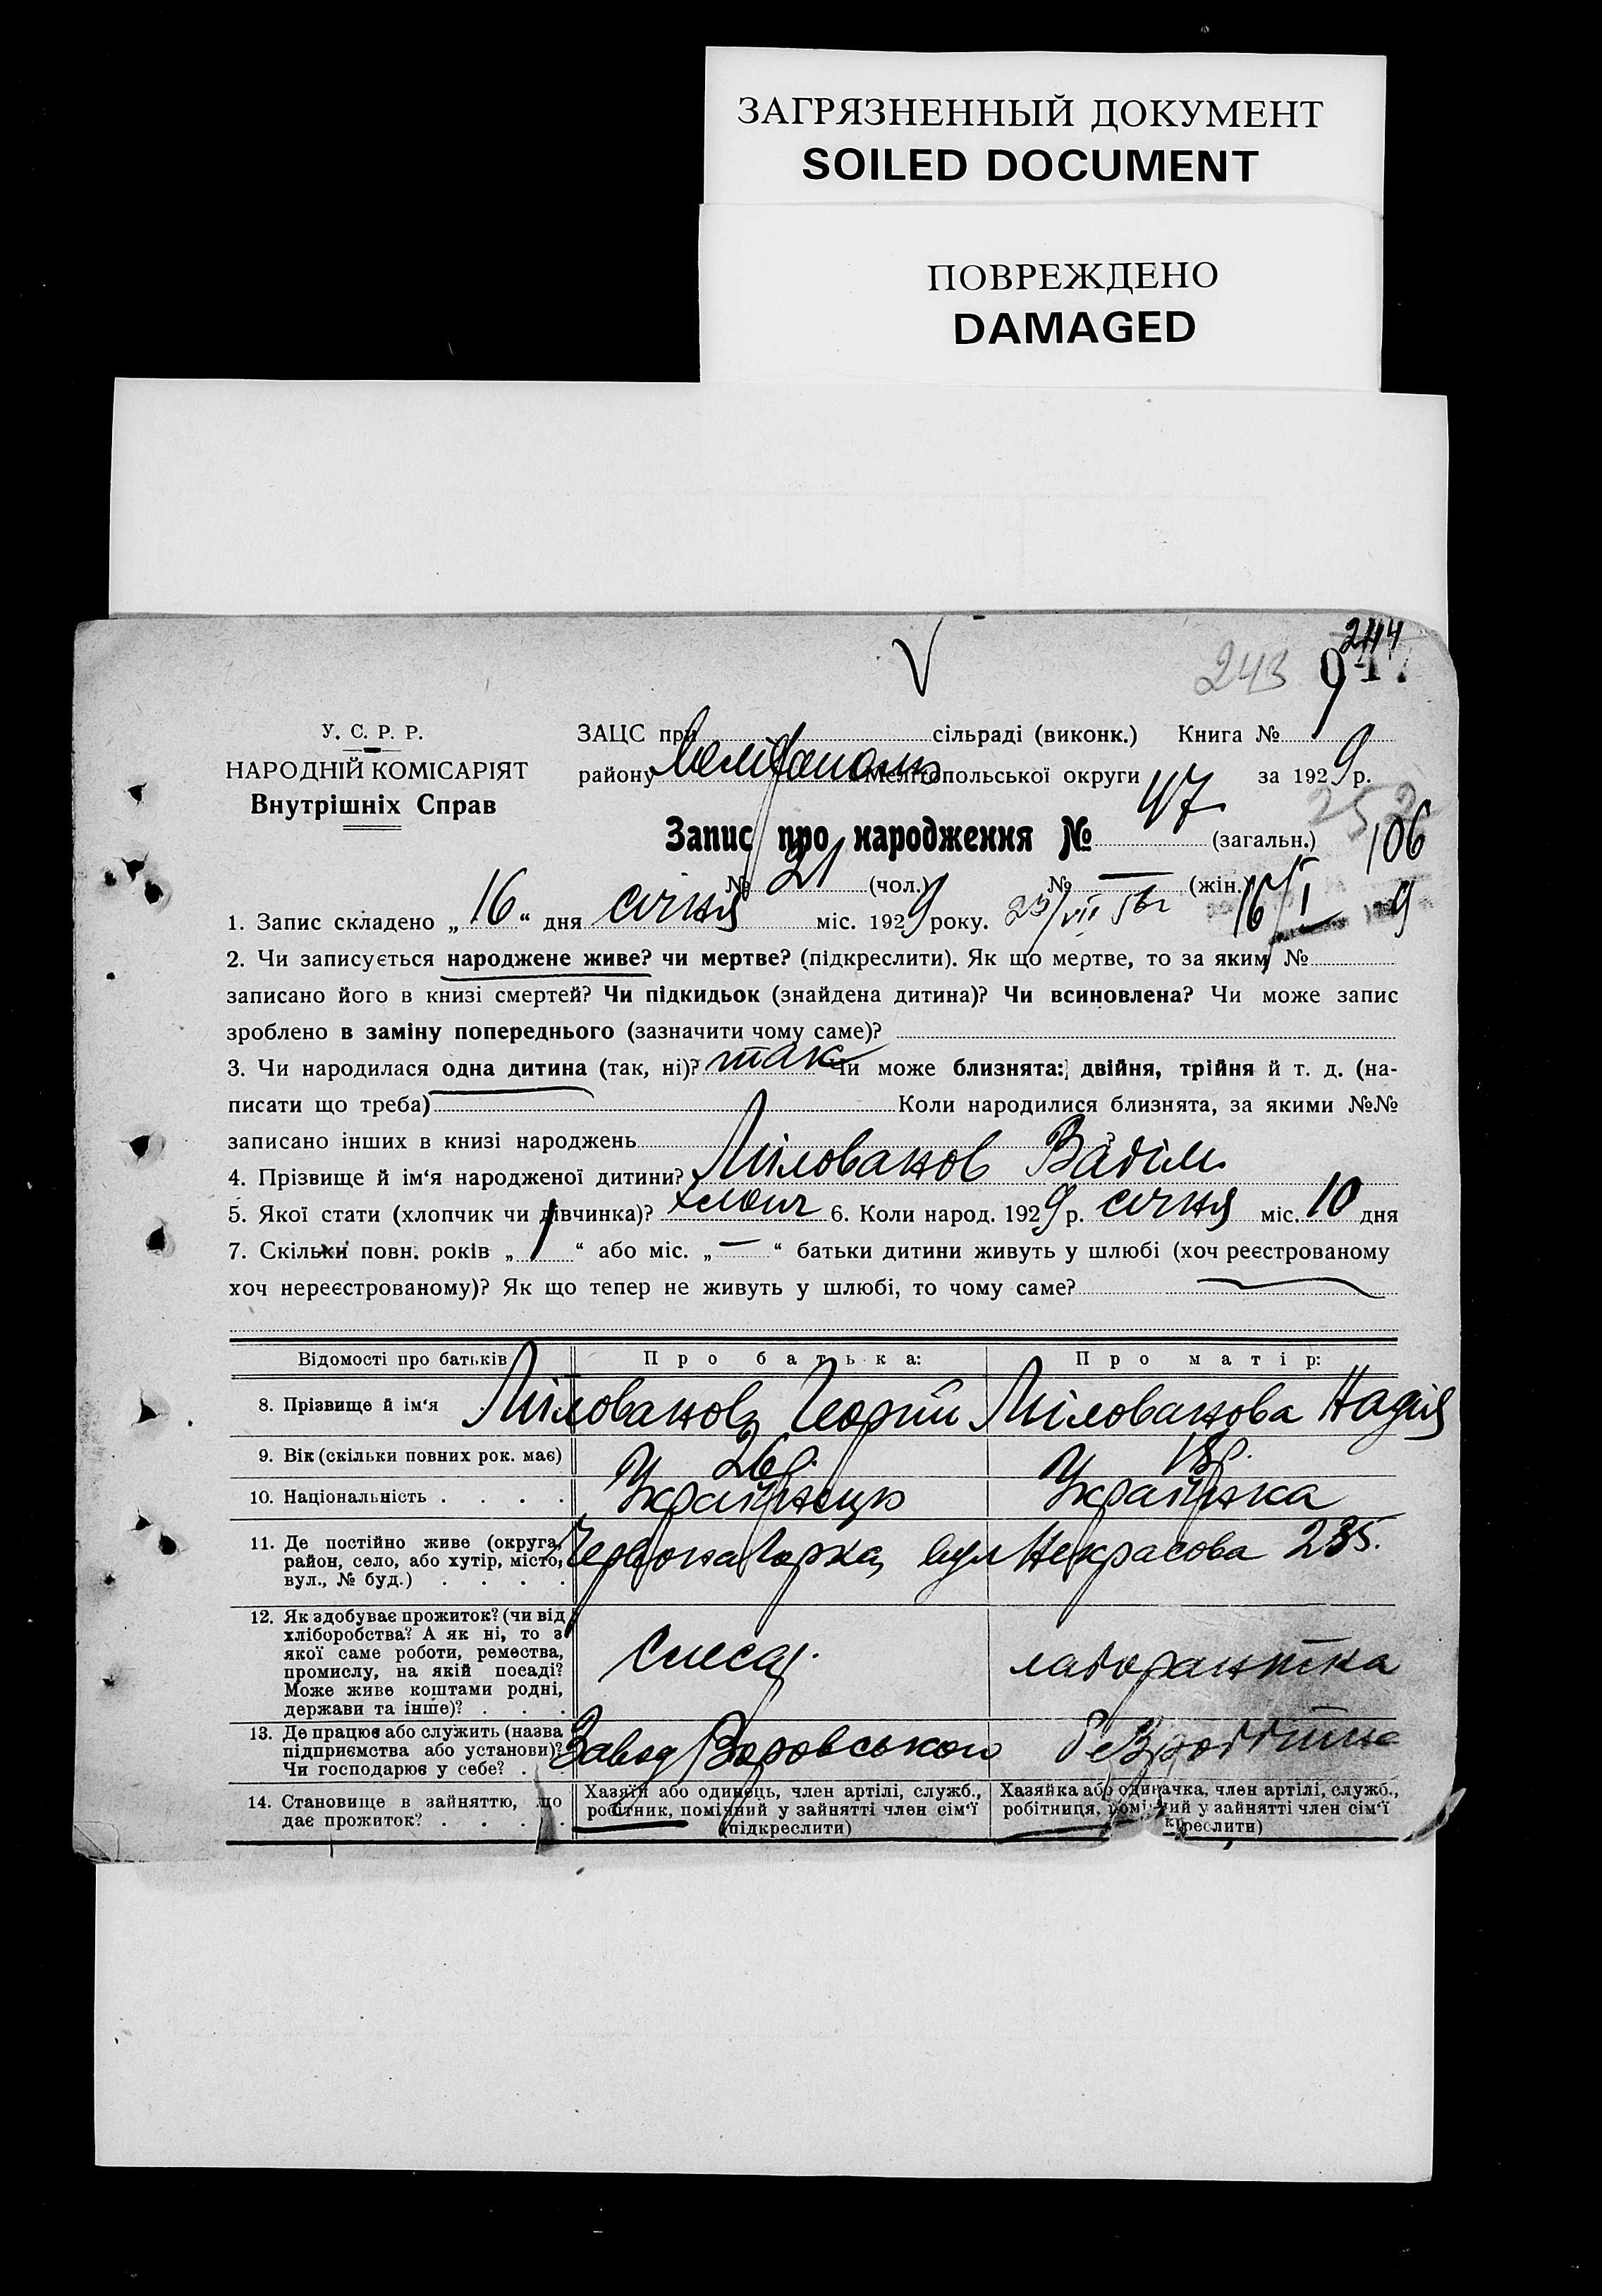 ЗАГРЯЗНЕННЫЙ ДОКУМЕНТ
SOILED DOCUMENT
ПОВРЕЖДЕНО
DAMAGED
244
243
У. С. Р. Р.
НАРОДНІЙ КОМІСАРІЯТ
Внутрішніх Справ
ЗАЦС при сільраді (виконк.) Книга №
району Мелітополь Мелітопольської округи за 1929 р.
252
Запис про народження № 47 (загальн.) 106
№ 21 (чол.) № — (жін.)
1. Запис складено „16“ дня січня міс. 1929 року. 16/I 9
2. Чи записується народжене живе? чи мертве? (підкреслити). Як що мертве, то за яким №
записано його в книзі смертей? Чи підкидьок (знайдена дитина)? Чи всиновлена? Чи може запис
зроблено в заміну попереднього (зазначити чому саме)?
3. Чи народилася одна дитина (так, ні)? так Чи може близнята: двійня, трійня й т. д. (на-
писати що треба) Коли народилися близнята, за якими №№
записано інших в книзі народжень ?
4. Прізвище й ім‘я народженої дитини? Мілованов Вадім
5. Якої стати (хлопчик чи дівчинка)? хлопч 6. Коли народ. 1929 р. січня міс. 10 дня
7. Скільки повн. років „1“ або міс. „—“ батьки дитини живуть у шлюбі (хоч реєстрованому
хоч нереєстрованому)? Як що тепер не живуть у шлюбі, то чому саме?
Відомості про батьків Про батька: Про матір:
8. Прізвище й ім‘я Мілованов Георгій Мілованова Надія
9. Вік (скільки повних рок. має) 26 р. 18 р.
10. Національність . . . . Українець Українка
11. Де постійно живе (округа,
район, село, або хутір, місто,
вул., № буд.) . . . .
Червона Горка, вул Некрасова 235.
12. Як здобуває прожиток? (чи від
хліборобства? А як ні, то з
якої саме роботи, ремества,
промислу, на якій посаді?
Може живе коштами родні,
держави та інше)? . . .
Слесар. лаборантка
13. Де працює або служить (назва
підприємства або установи)?
Чи господарює у себе? .
Завод Воровського безробітна
14. Становище в зайняттю, що
дає прожиток? . . . .
Хазяїн або одинець, член артілі, служб.,
робітник, помічний у зайнятті член сім‘ї
(підкреслити)
Хазяйка або одиначка, член артілі, служб.,
робітниця, помічний у зайнятті член сім‘ї
креслити)